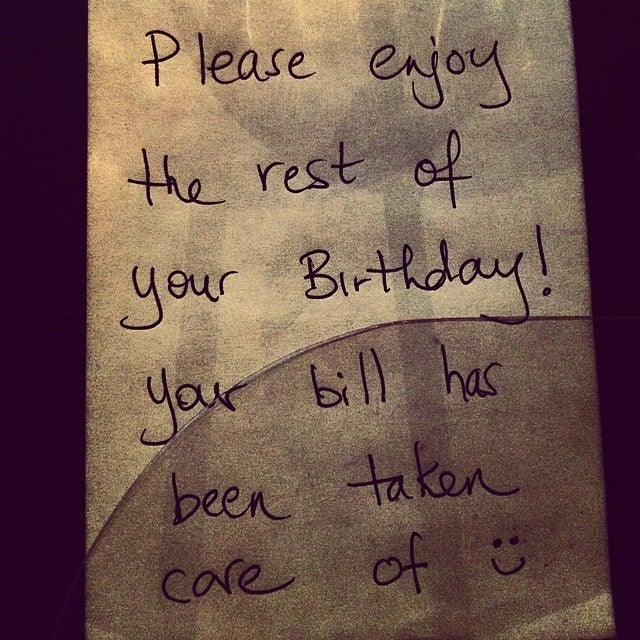 Please enjoy
the rest of
your Birthday!
your bill has
been taken
care of :)